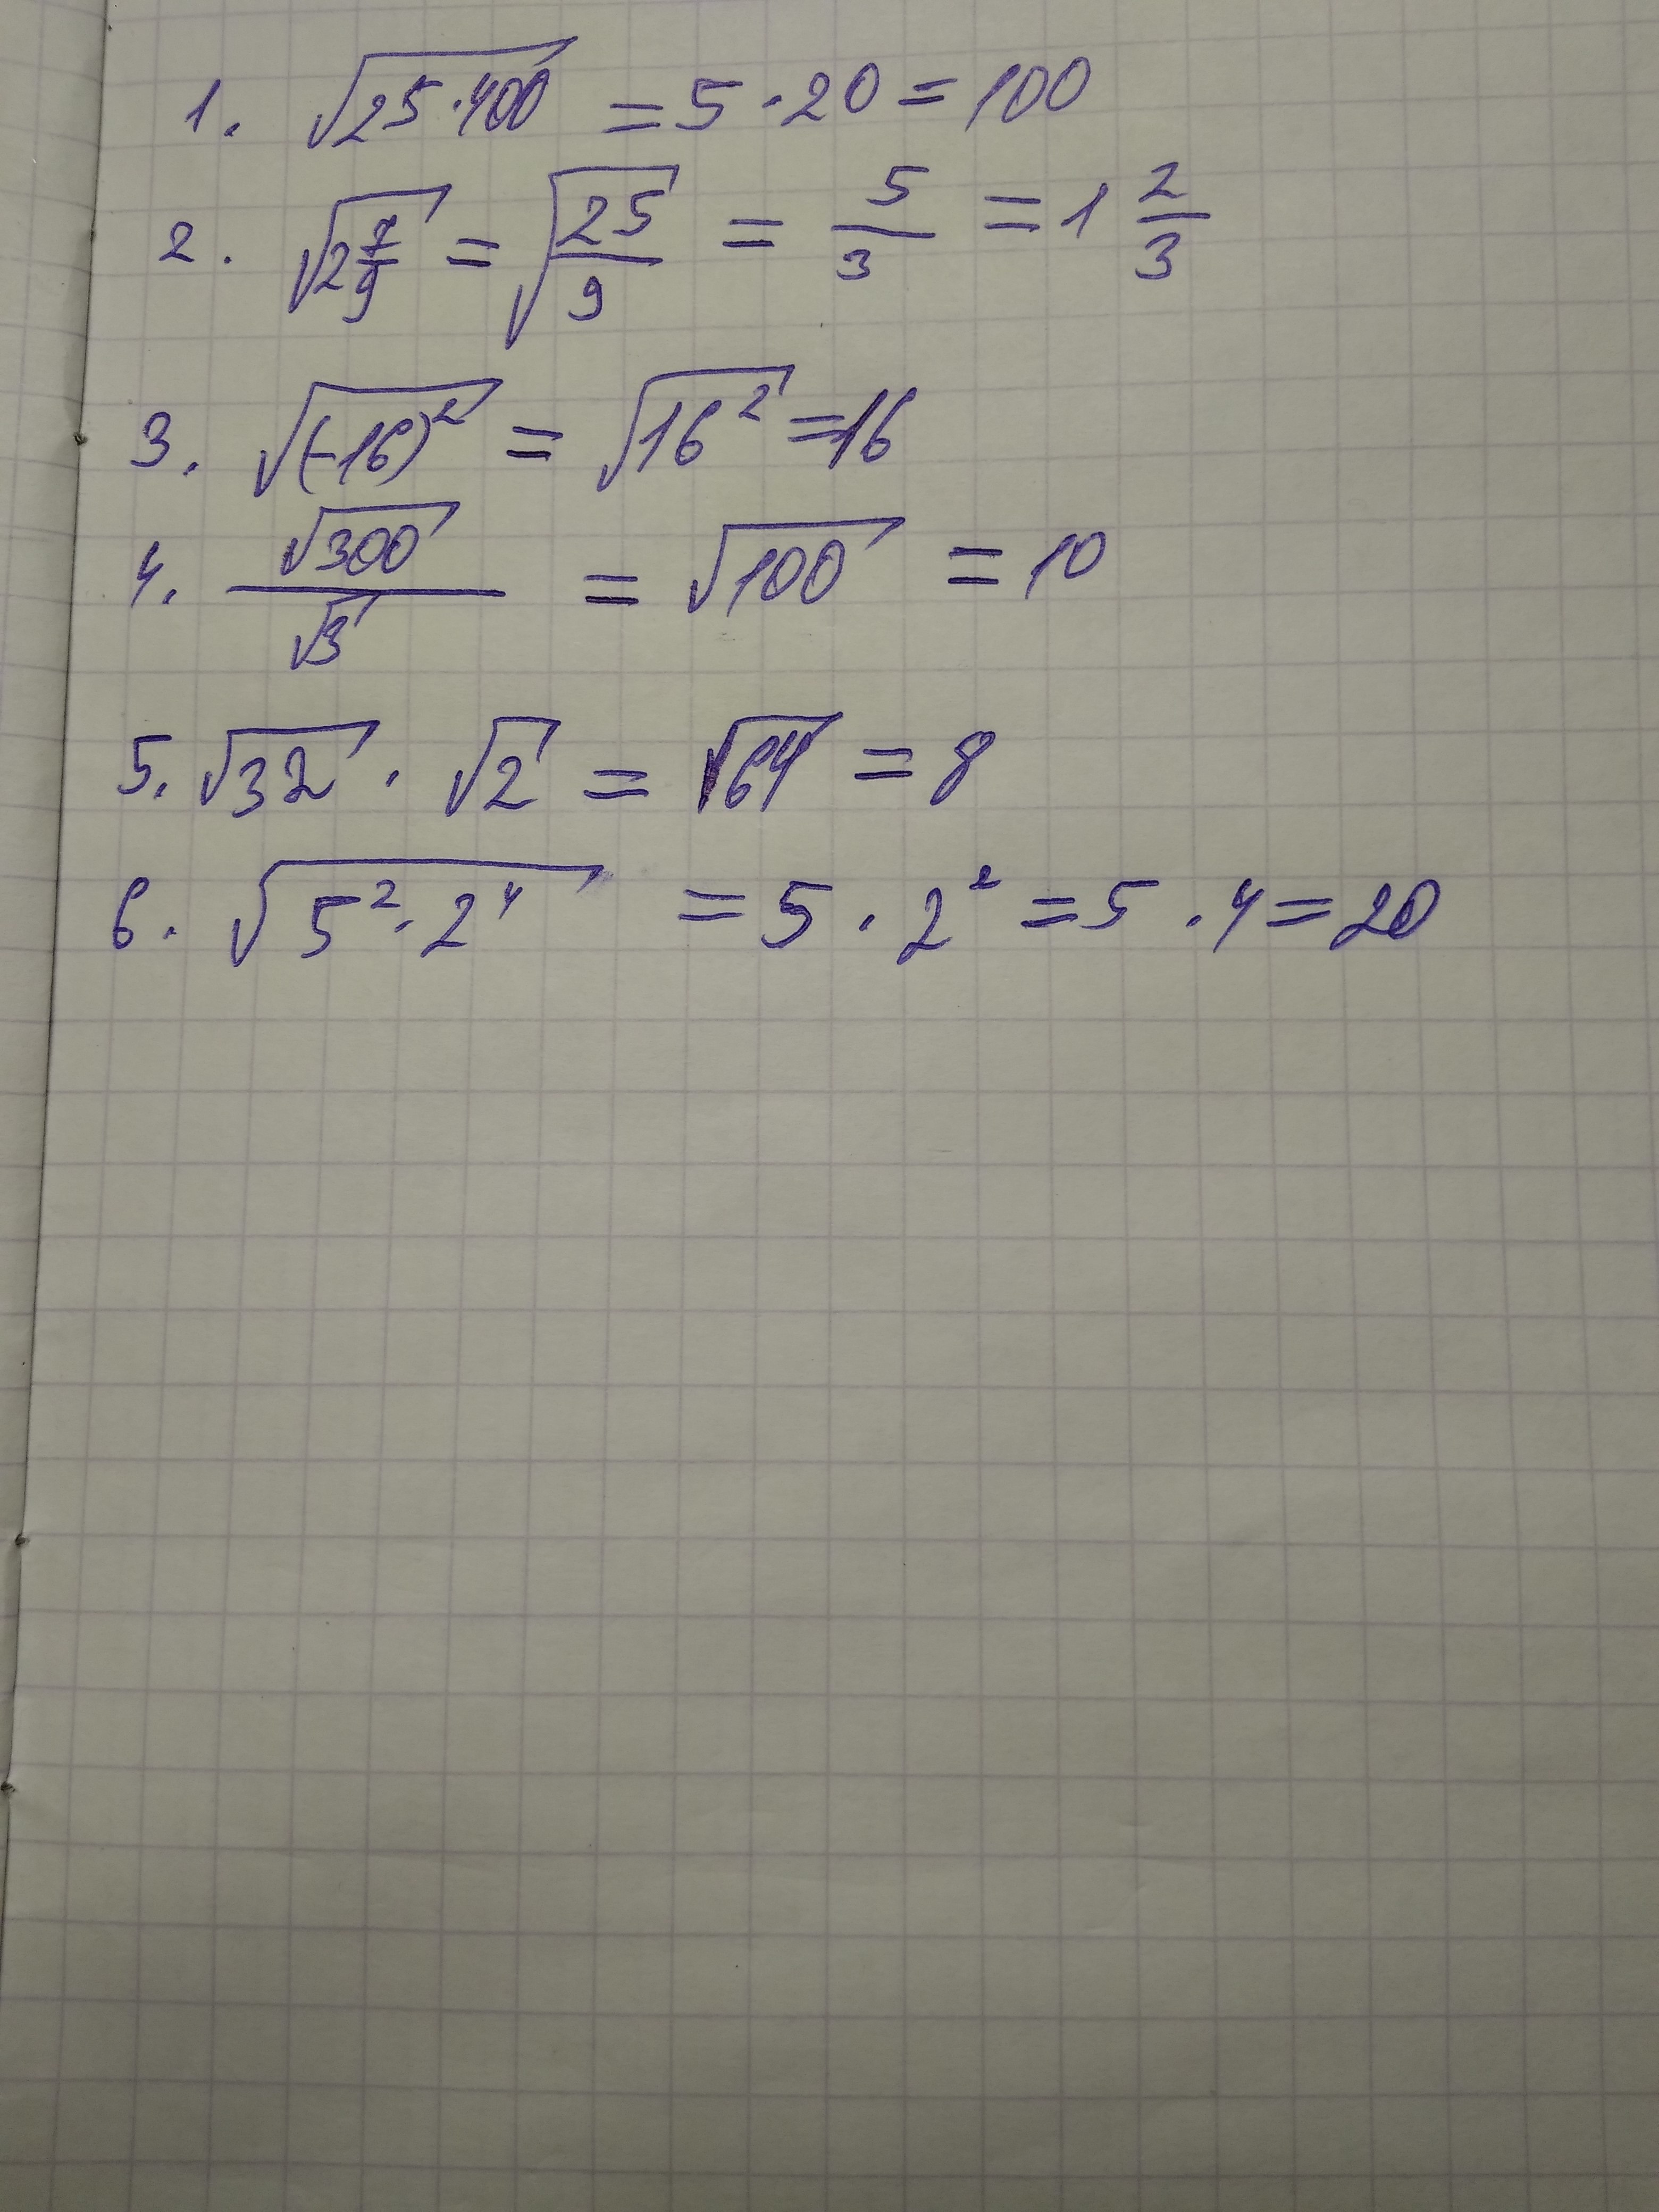 1. √25·400 = 5·20 = 100
2. √2 7/9 = √25/9 = 5/3 = 1 2/3
3. √(-16)² = √16² = 16
4. √300/√3 = √100 = 10
5. √32 · √2 = √64 = 8
6. √5²·2⁴ = 5·2² = 5·4 = 20